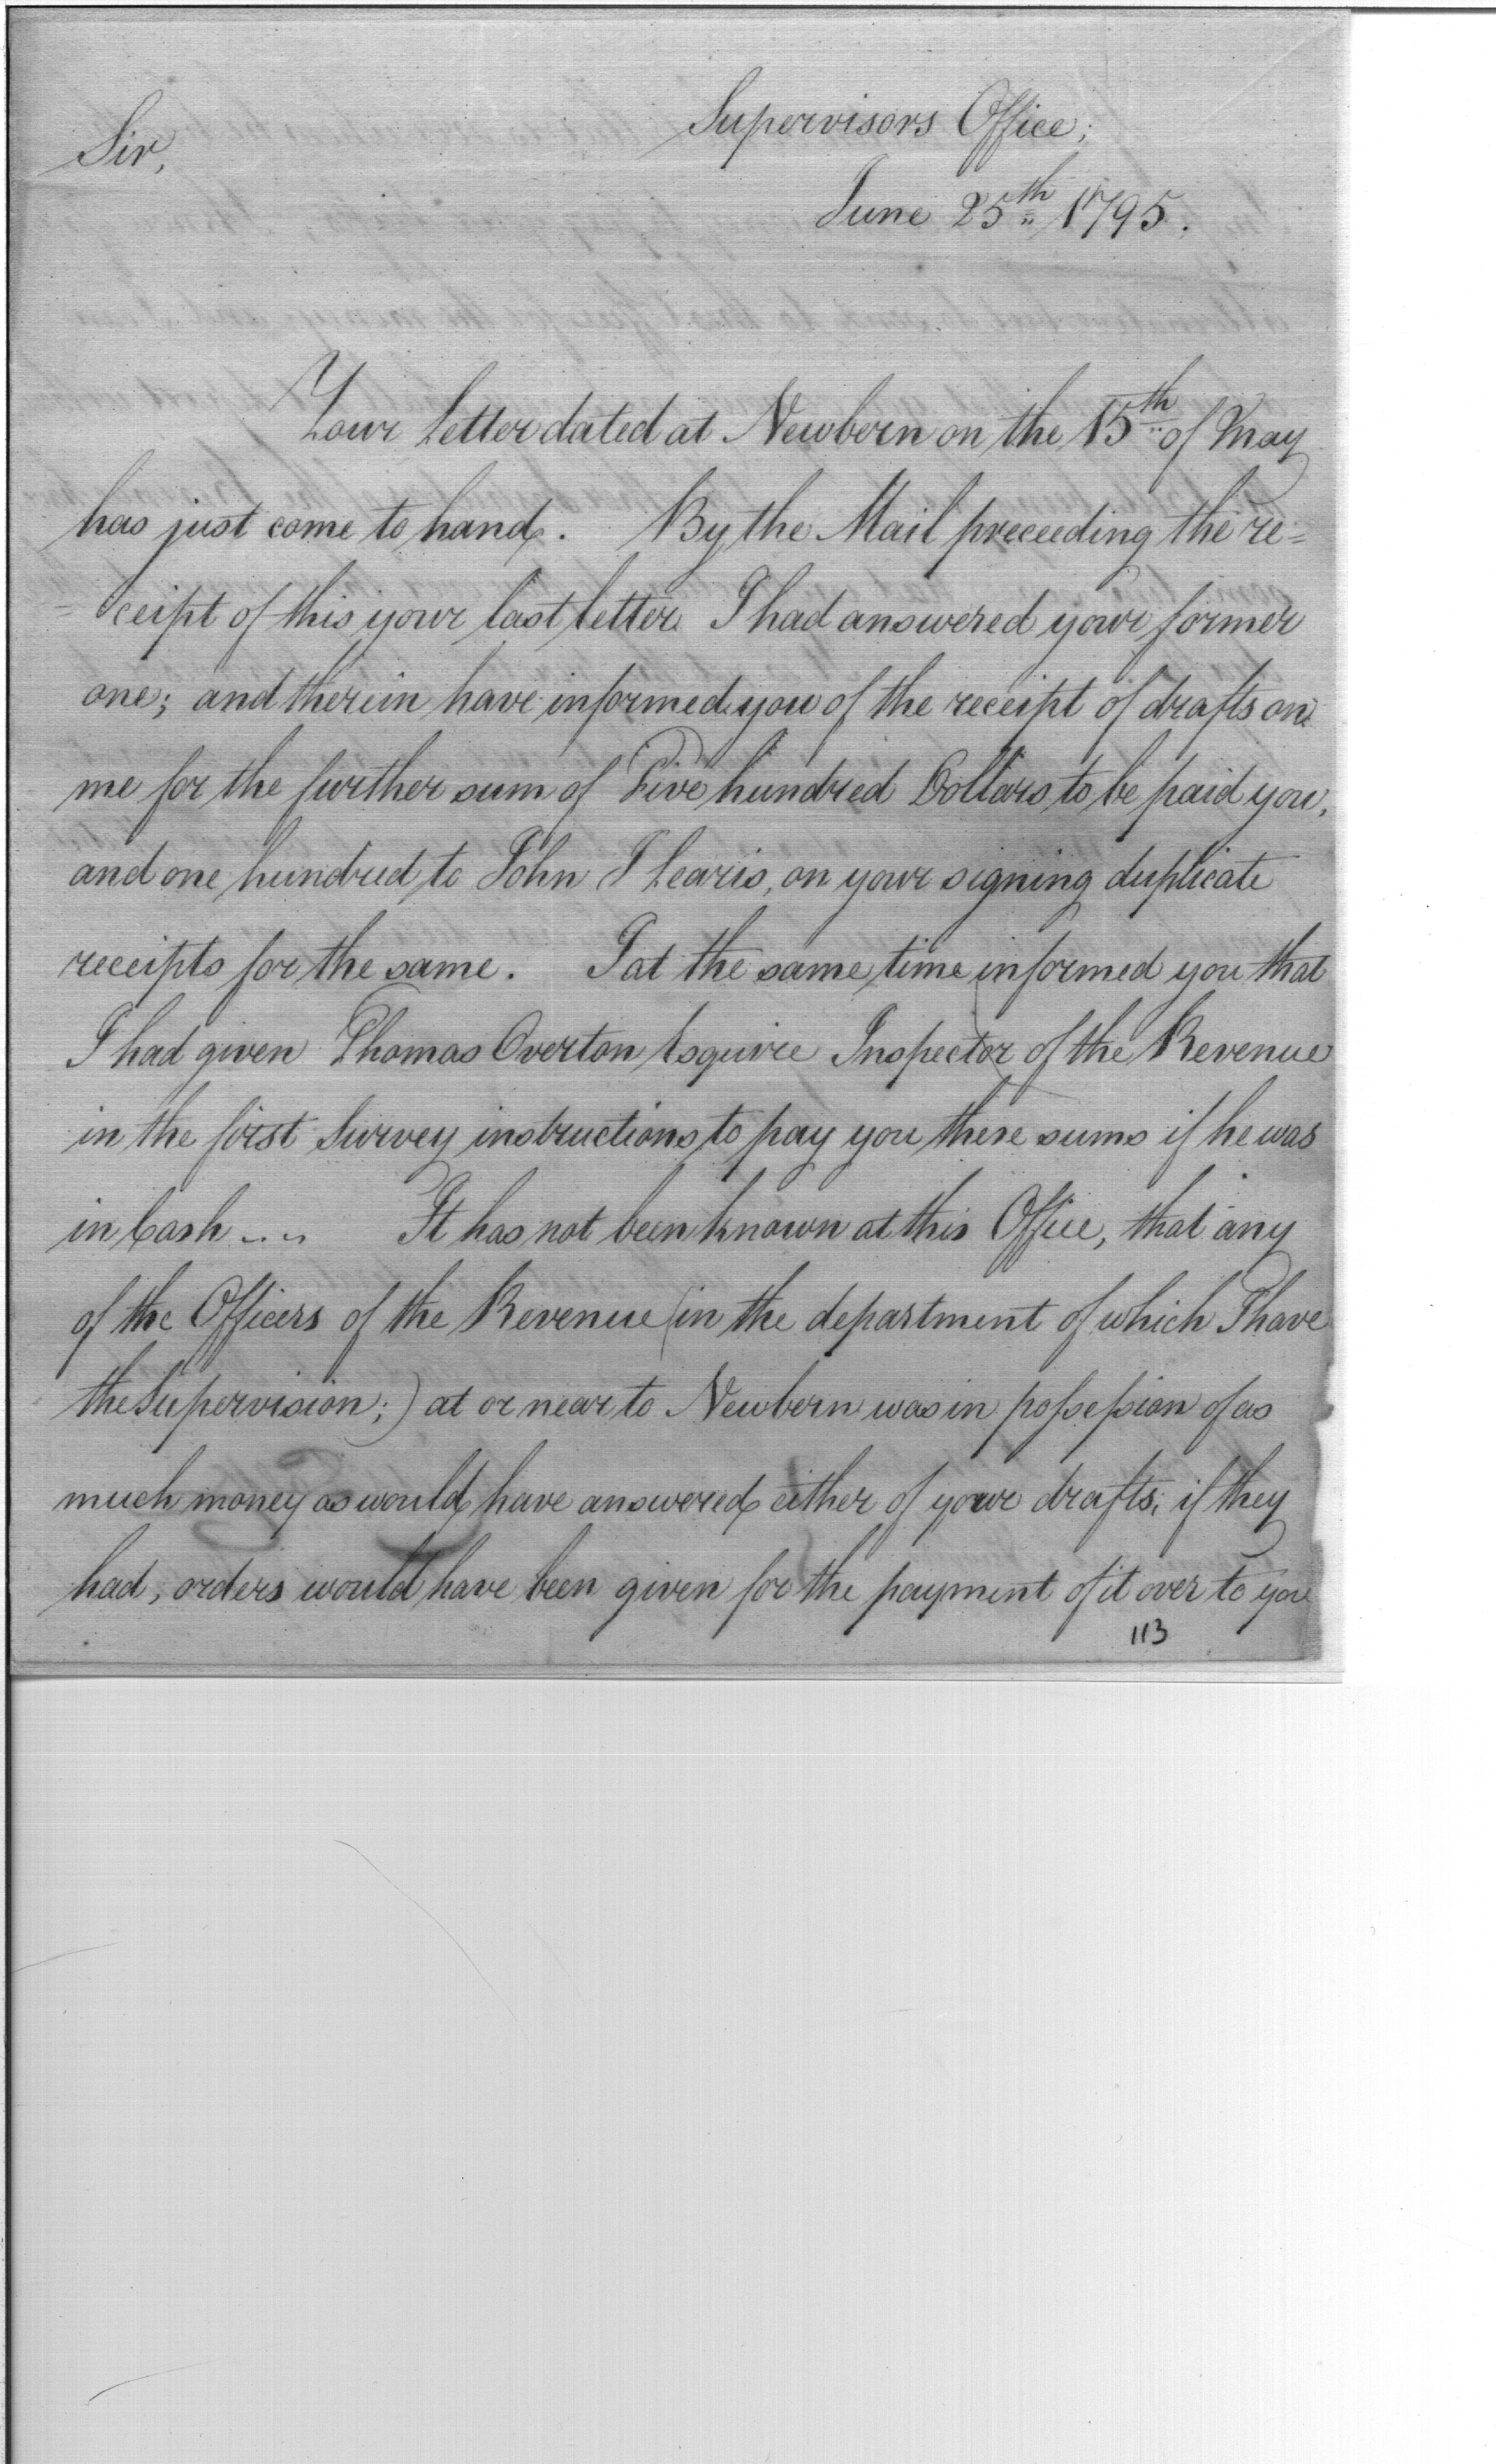 Supervisors Office;
Sir,
June 25th 1795.
Your Letter dated at Newbern on the 15th of May
has just come to hand. By the Mail preceeding the re=
=ceipt of this your last letter I had answered your former
one; and therein have informed you of the receipt of drafts on
me for the further sum of Five hundred Dollars to be paid you,
and one hundred to John J, on your signing duplicate
receipts for the same. I at the same time informed you that
I had given Thomas Overton Esquire Inspector of the Revenue
in the first Survey instructions to pay you these sums if he was
in Cash .... It has not been known at this Office, that any
of the Officers of the Revenue (in the department of which I have
the Supervision;) at or near to Newbern was in possession of as
much money as would have answered either of your drafts; if they
had, orders would have been given for the payment of it over to you
113